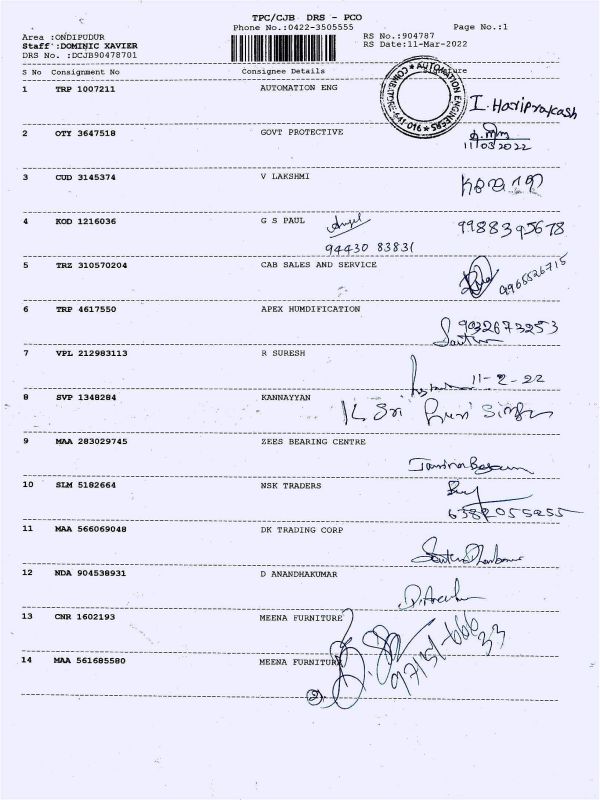 TPC/CJB DRS - PCO
Phone No.:0422-3505555
Page No.:1
Area :ONDIPUDUR
RS No.:904787
Staff:DOMINIC XAVIER
RS Date:11-Mar-2022
DRS No. :DCJB90478701
S No Consignment No Consignee Details Signature
AUTOMATION ENGINEERS * COIMBATORE-641 016 *
1 TRP 1007211 AUTOMATION ENG
I. Hariprakash
2 OTY 3647518 GOVT PROTECTIVE
11/03/2022
3 CUD 3145374 V LAKSHMI
4 KOD 1216036 G S PAUL
9988395678
94430 83831
5 TRZ 310570204 CAB SALES AND SERVICE
9965526715
6 TRP 4617550 APEX HUMDIFICATION
9032673253
7 VPL 212983113 R SURESH
11-2-22
8 SVP 1348284 KANNAYYAN
9 MAA 283029745 ZEES BEARING CENTRE
10 SLM 5182664 NSK TRADERS
6382055255
11 MAA 566069048 DK TRADING CORP
12 NDA 904538931 D ANANDHAKUMAR
13 CNR 1602193 MEENA FURNITURE
14 MAA 561685580 MEENA FURNITURE
97151-66633